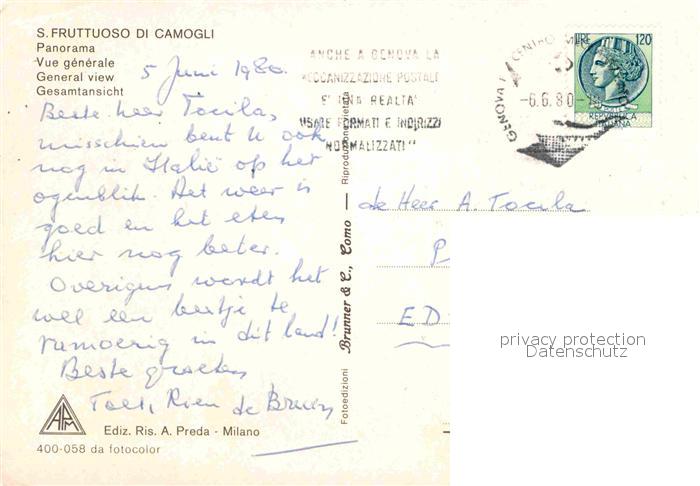 S. FRUTTUOSO DI CAMOGLI
Panorama
Vue générale
General view
Gesamtansicht
5 Juni 1980.
Beste heer Tocila,
misschien bent U ook
nog in Italië op het
ogenblik. Het weer is
goed en het eten
hier nog beter.
Overigens wordt het
wel een beetje te
rumoerig in dit land!
Beste groeten
Rien de Bruijn
Ediz. Ris. A. Preda - Milano
400-058 da fotocolor
Fotoedizioni Brunner & C., Como — Riproduzione vietata
ANCHE A GENOVA LA
MECCANIZZAZIONE POSTALE
E' UNA REALTA'
USARE FORMATI E INDIRIZZI
"NORMALIZZATI"
GENOVA
CENTRO
-6.6.80-
LIRE 120
REPUBBLICA
ITALIANA
de Heer A. Tocila
P
ED
privacy protection
Datenschutz